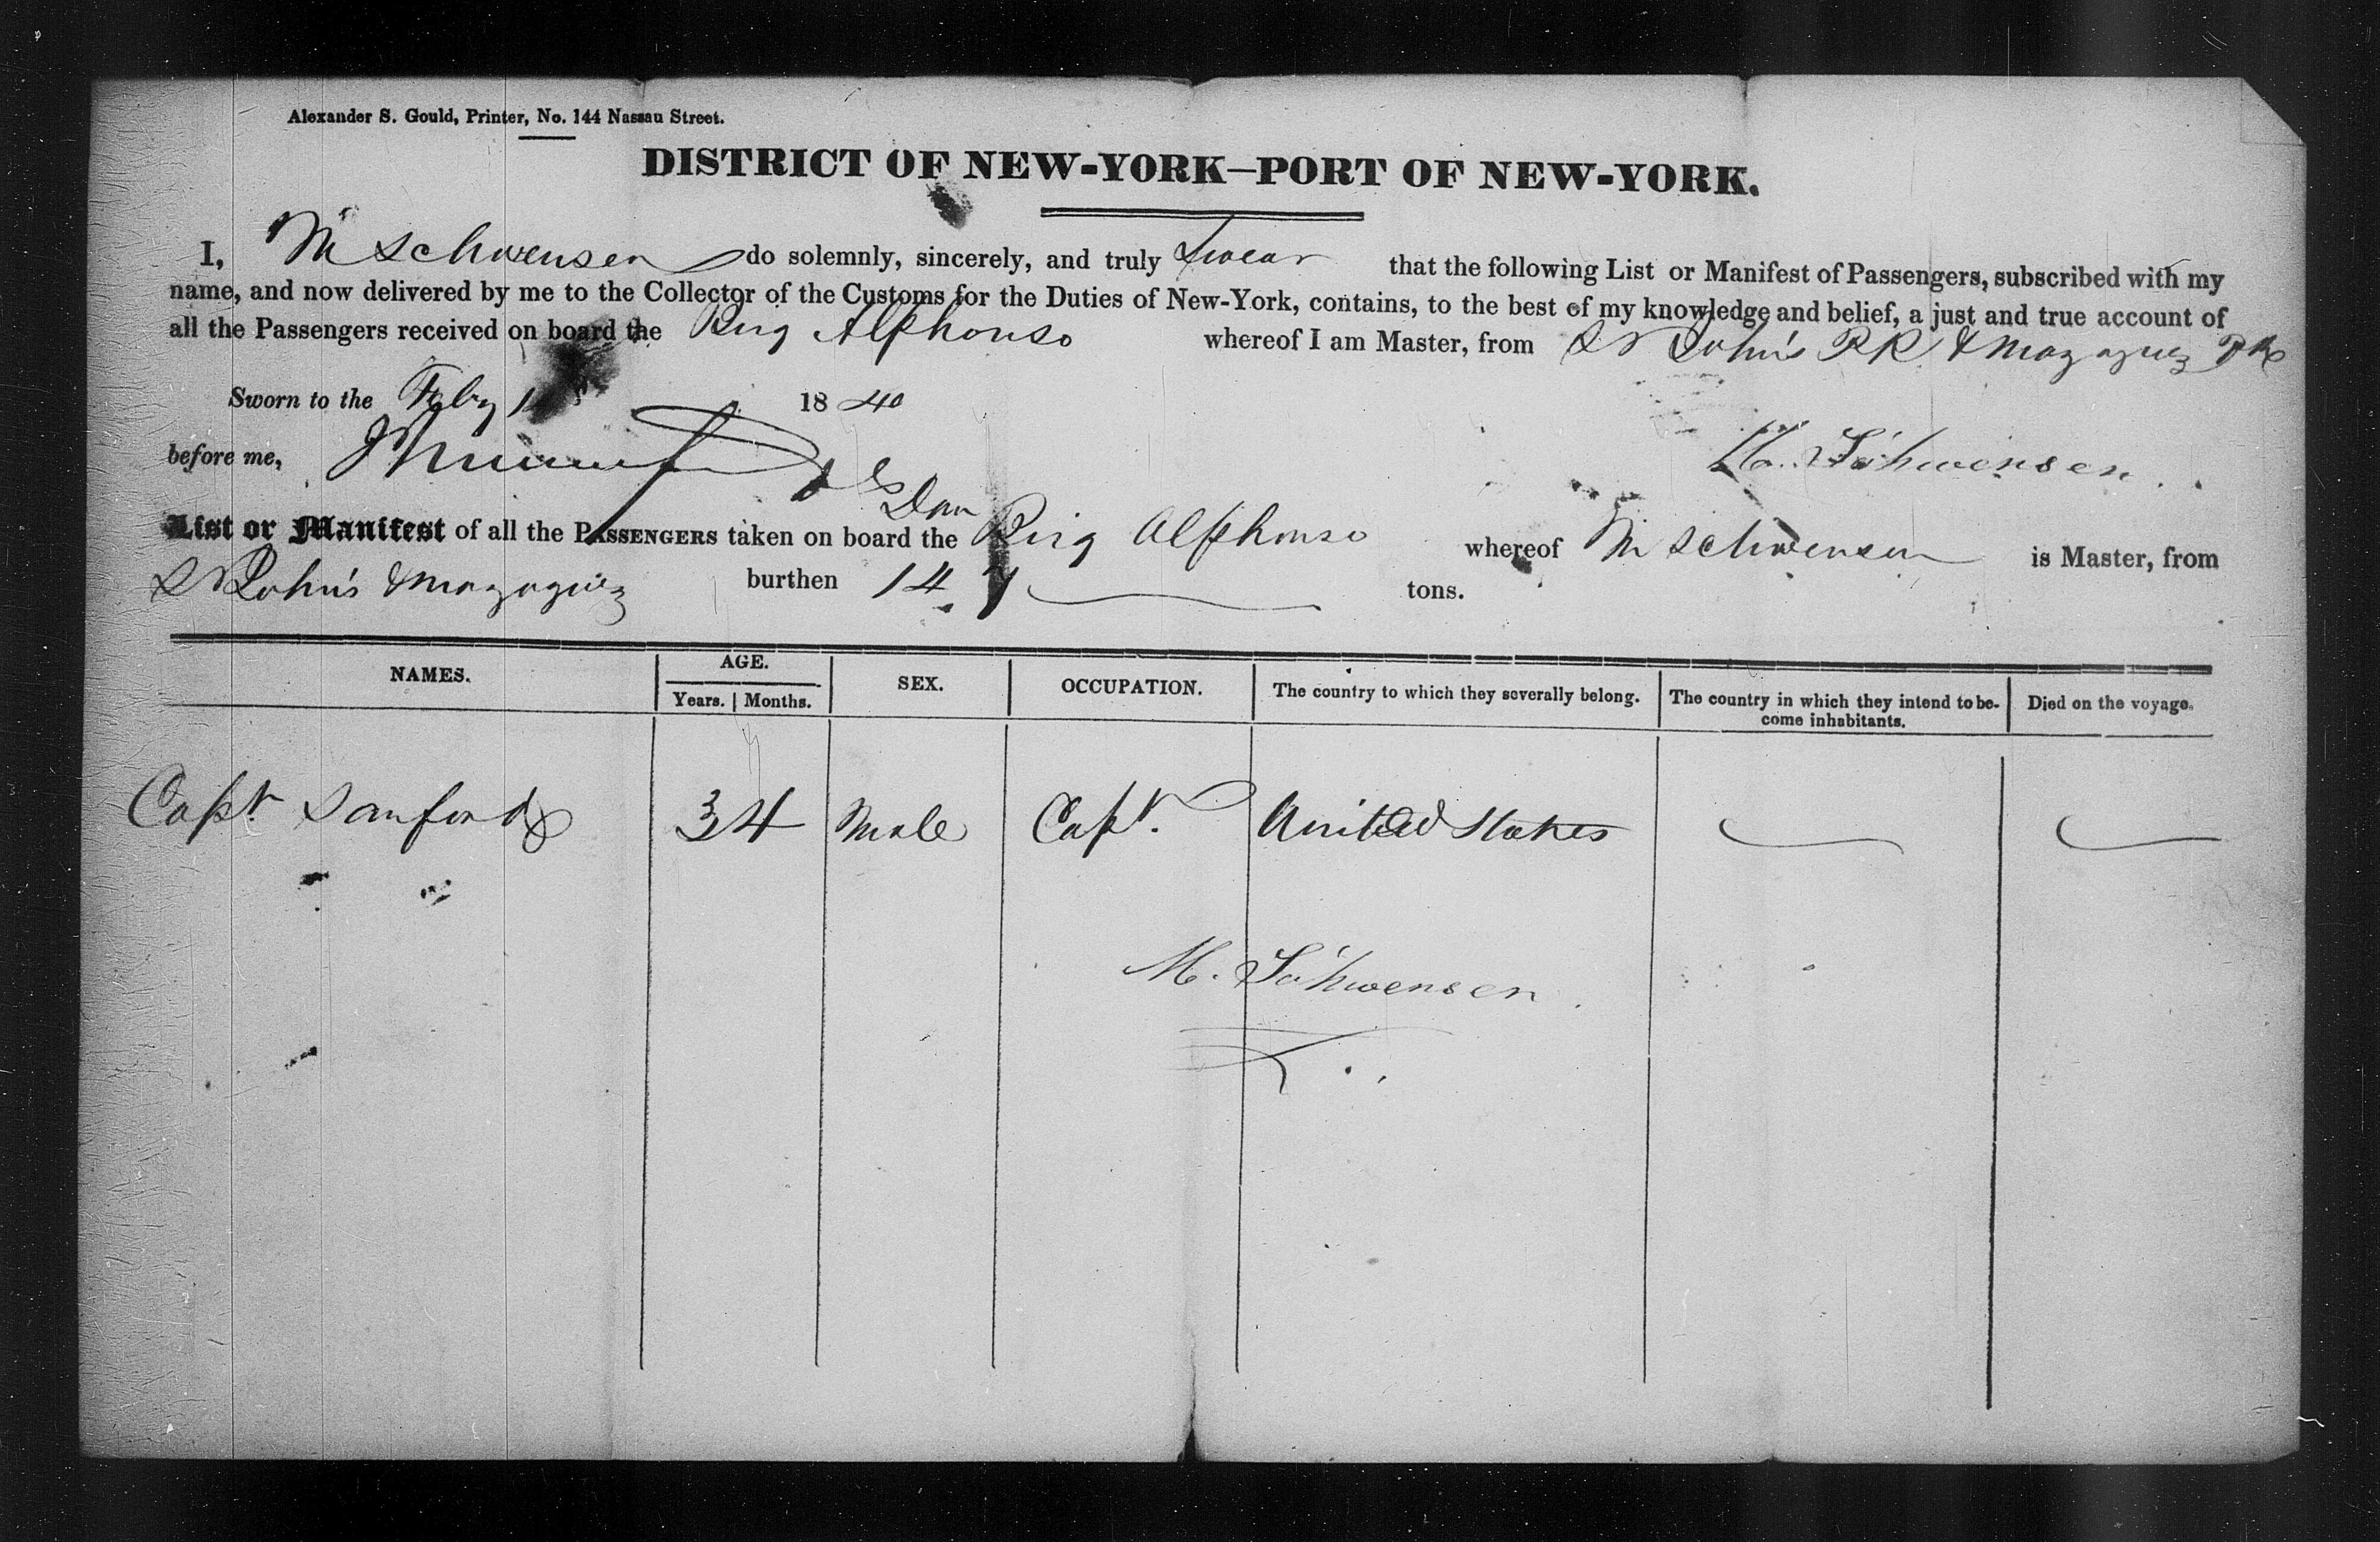 Alexander S. Gould, Printer, No. 144 Nassau Street.
DISTRICT OF NEW-YORK—PORT OF NEW-YORK.
I, M Schwensen do solemnly, sincerely, and truly Swear that the following List or Manifest of Passengers, subscribed with my
name, and now delivered by me to the Collector of the Customs for the Duties of New-York, contains, to the best of my knowledge and belief, a just and true account of
all the Passengers received on board the Brig Alphonso whereof I am Master, from St John's P R & Mazaguez P R
Sworn to the Feby 1840
before me,
M. Schwensen
Dan
List or Manifest of all the PASSENGERS taken on board the Brig Alphonso whereof M Schwensen is Master, from
St John's & Mazaguez burthen 147 tons.
NAMES. AGE. SEX. OCCUPATION. The country to which they severally belong. The country in which they intend to be- Died on the voyage.
Years. Months. come inhabitants.
Capt Sanford 34 Male Capt. United States
M. Schwensen